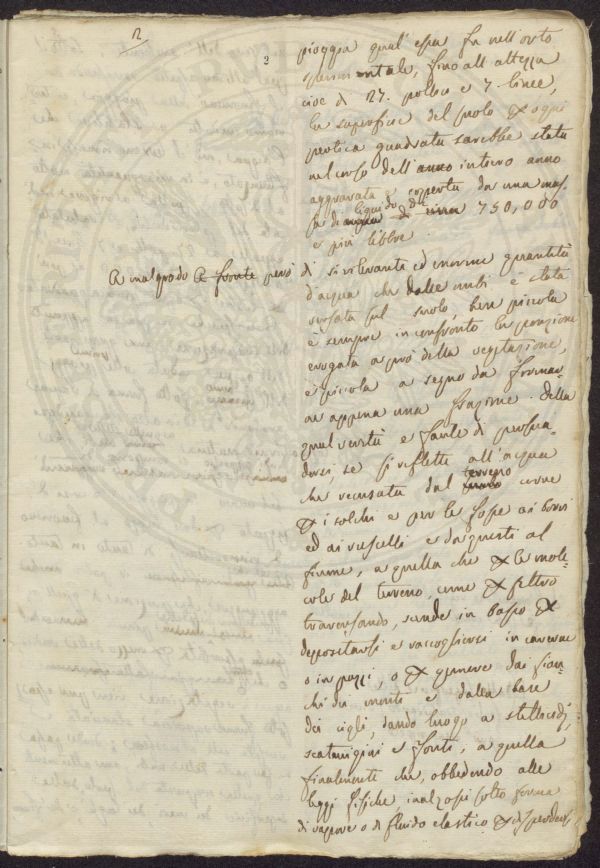 2
2
pioggia qual' essa fu nell'orto
sperimentale, fino all'altezza
cioè di 27. pollici e 7. linee,
la superficie del suolo ogni
pertica quadrata sarebbe stata
nel corso dell' anno intero anno
aggravata e coperta da una mas-
sa di liquido di 750,000
e più libbre
A malgrado A fronte però di sì rilevante ed enorme quantità
d'acqua che dalle nubi è stata
versata sul suolo, ben piccola
è sempre in confronto la porzione
erogata a pro della vegetazione,
è piccola a segno da formar-
ne appena una frazione. Della
qual verità è facile di persua-
dersi, se si riflette all'acqua
che ricusata dal terreno corre
i solchi e per le fosse ai borri
ed ai ruscelli e da questi al
fiume, a quella che le mole-
cole del terreno, come feltro
traversando, scende in basso
depositarsi e raccogliersi in caverne
o in pozzi, o gemere dai fian-
chi dei monti e dalla base
dei cigli, dando luogo a stillicidj,
scaturigini e fonti, a quella
finalmente che, obbedendo alle
leggi fisiche, inalzasi sotto forma
di vapore o di fluido elastico disperdersi